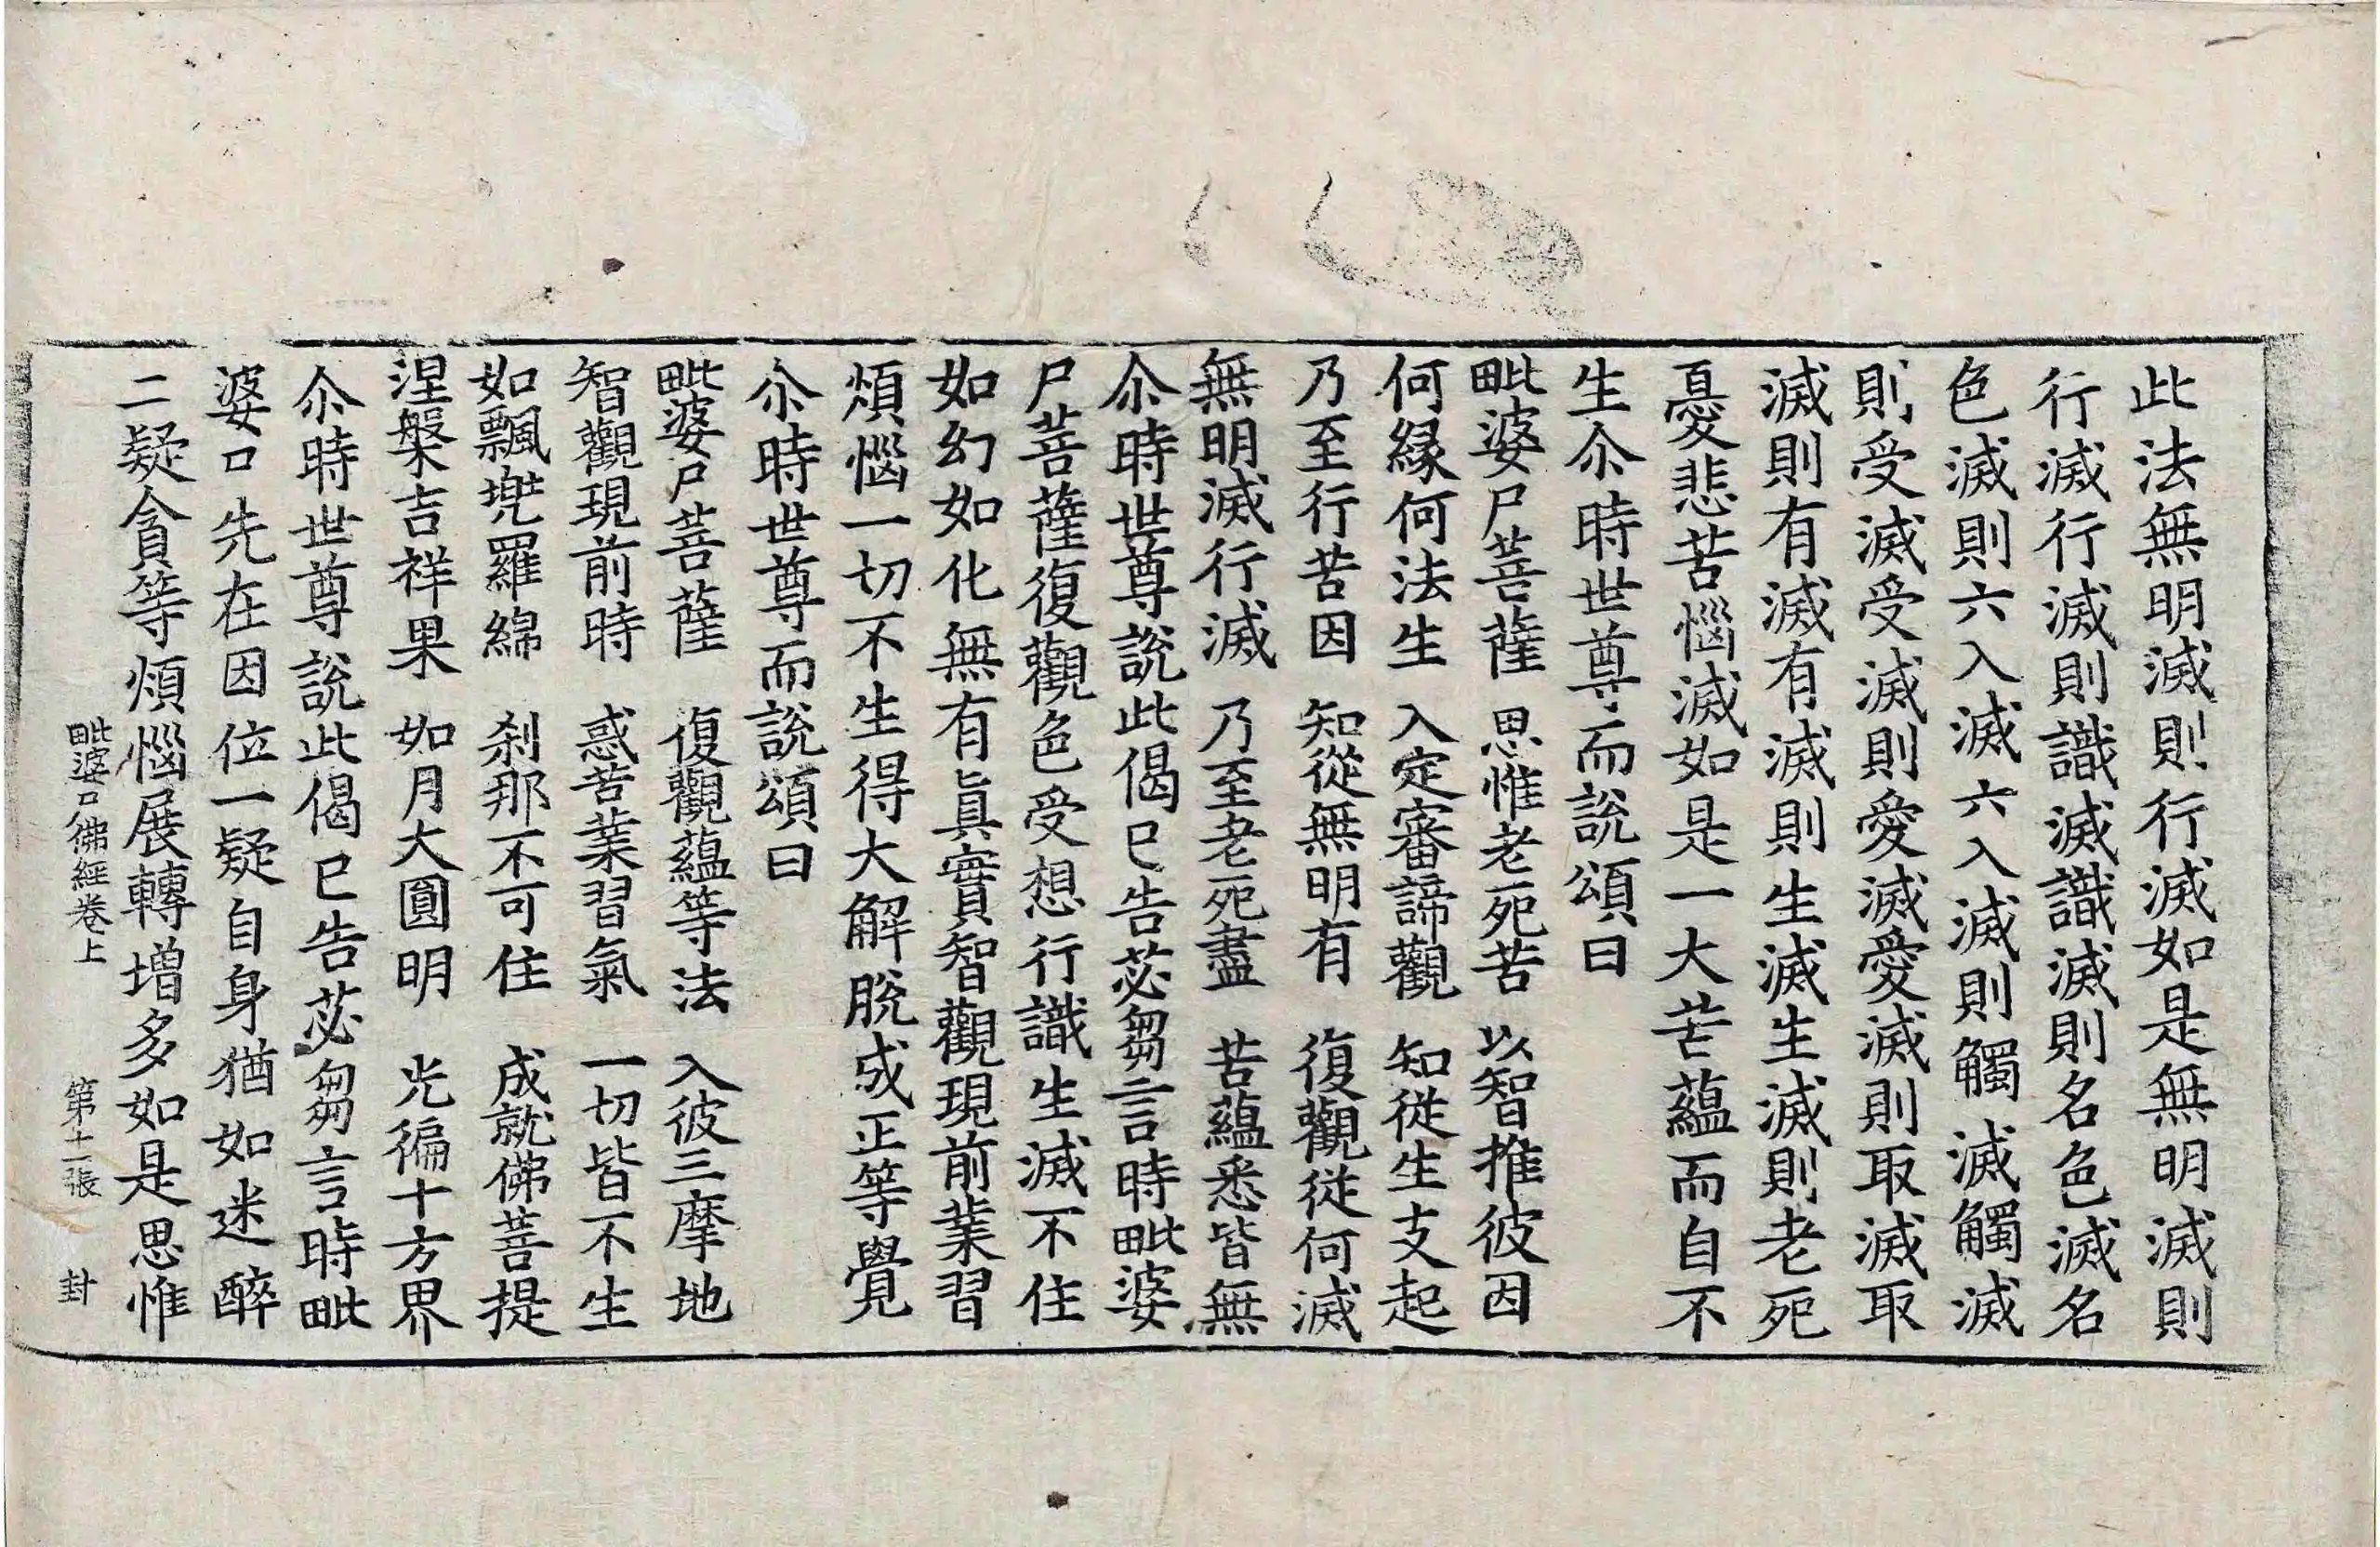 此法無明滅則行滅如是無明滅則
行滅行滅則識滅識滅則名色滅名
色滅則六入滅六入滅則觸滅觸滅
則受滅受滅則愛滅愛滅則取滅取
滅則有滅有滅則生滅生滅則老死
憂悲苦惱滅如是一大苦蘊而自不
生尒時世尊而說頌曰
毗婆尸菩薩 思惟老死苦 以智推彼因
何緣何法生 入定審諦觀 知從生支起
乃至行苦因 知從無明有 復觀從何滅
無明滅行滅 乃至老死盡 苦蘊悉皆無
尒時世尊說此偈已告苾芻言時毗婆
尸菩薩復觀色受想行識生滅不住
如幻如化無有眞實智觀現前業習
煩惱一切不生得大解脫成正等覺
尒時世尊而說頌曰
毗婆尸菩薩 復觀蘊等法 入彼三摩地
智觀現前時 惑苦業習氣 一切皆不生
如飄兠羅綿 刹那不可住 成就佛菩提
涅槃吉祥果 如月大圓明 光徧十方界
尒時世尊說此偈已告苾芻言時毗
婆尸先在因位一疑自身猶如迷醉
二疑貪等煩惱展轉增多如是思惟
毗婆尸佛經卷上 第十二張 封